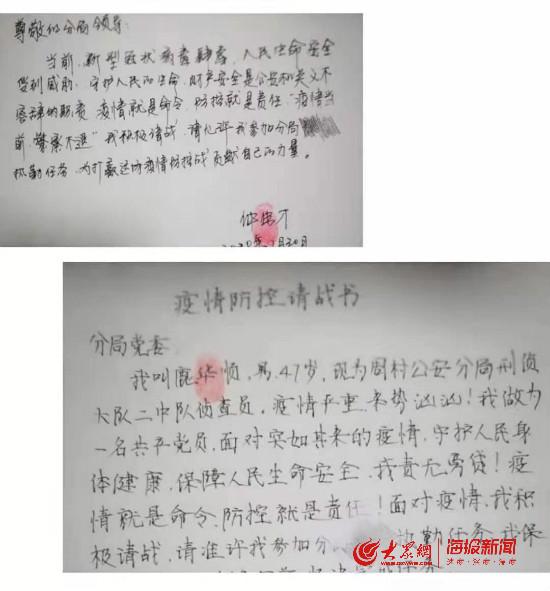 尊敬的分局领导:
当前,新型冠状病毒肆虐,人民生命安全
受到威胁,守护人民的生命、财产安全是公安机关义不
容辞的职责,疫情就是命令,防控就是责任,"疫情当
前,警察不退"我积极请战,请允许我参加分局
执勤任务,为打赢这场疫情防控战贡献自己的力量。
2020年1月30日
疫情防控请战书
分局党委
我叫 华顺,男,47岁,现为周村公安分局刑侦
大队二中队侦查员,疫情严重,来势汹汹!我做为
一名共产党员,面对突如其来的疫情,守护人民身
体健康,保障人民生命安全,我责无旁贷!疫
情就是命令,防控就是责任!面对疫情,我积
极请战,请准许我参加分 执勤任务,我保
大众网 海报新闻